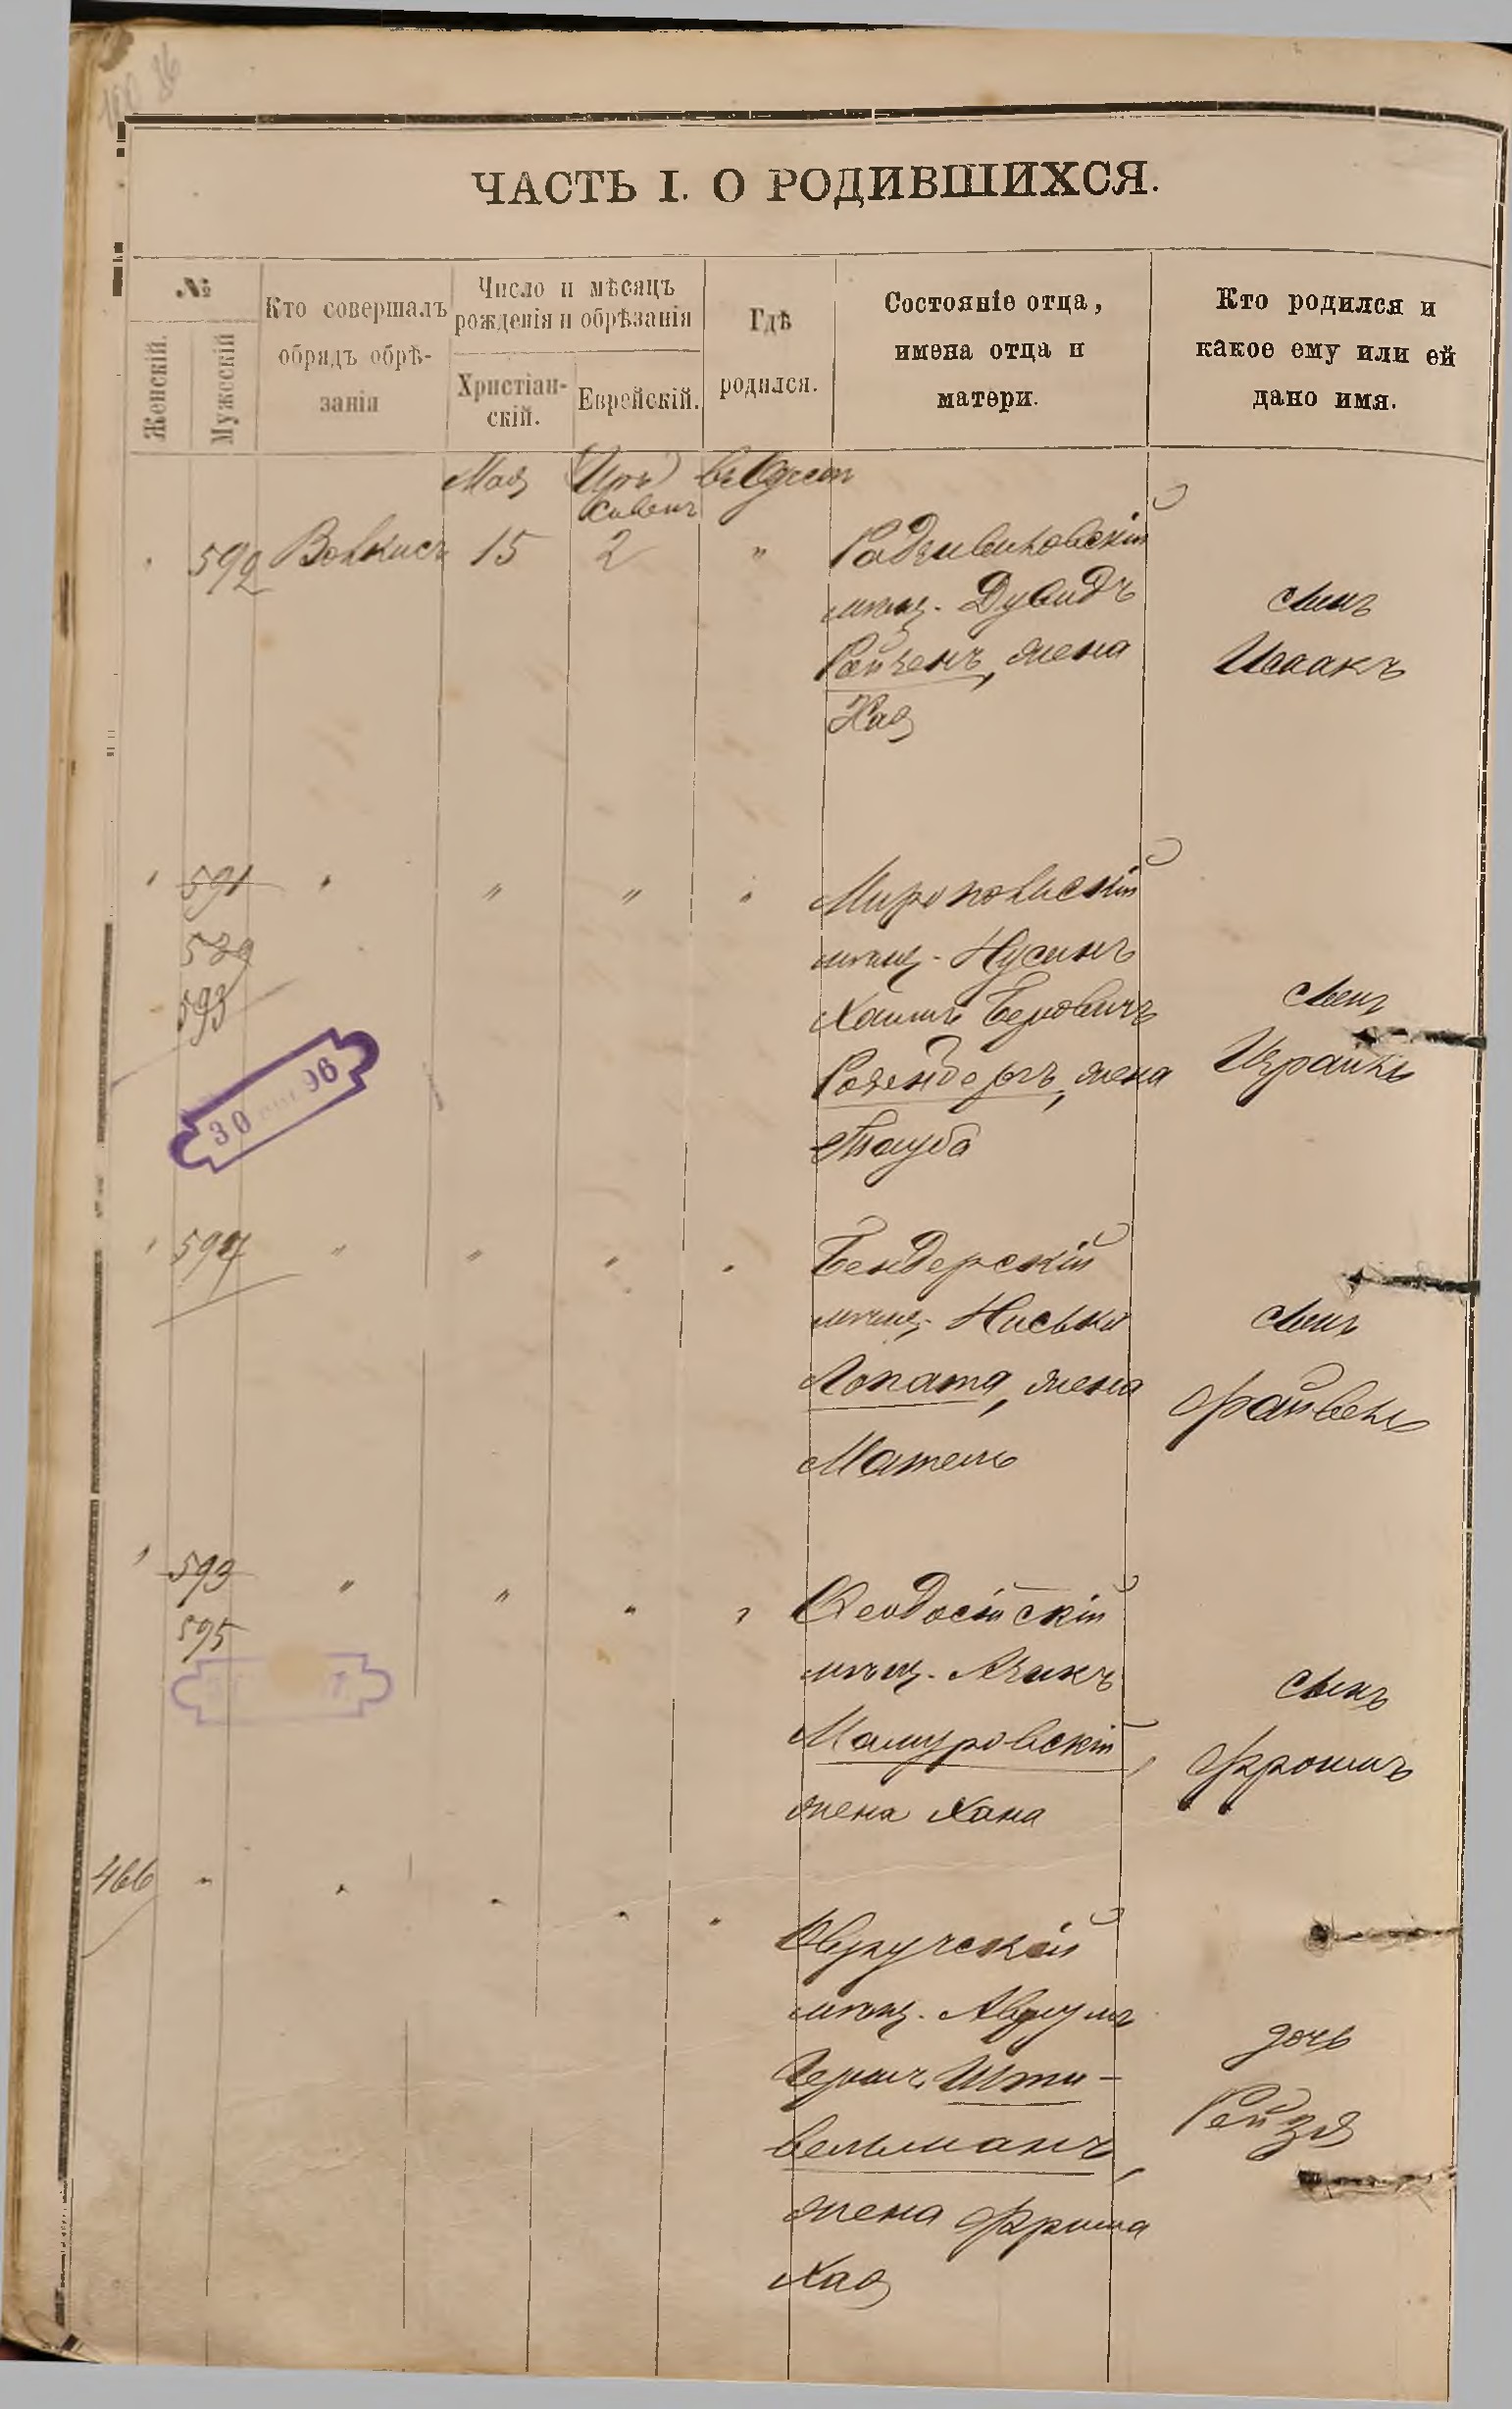 ЧАСТЬ I. О РОДИВШИХСЯ.
№
Женскій.
Мужескій
Кто совершалъ
обрядъ обрѣ-
занія
Число и мѣсяцъ
рожденія и обрѣзанія
Христіан-
скій.
Еврейскій.
Гдѣ
родился.
Состояніе отца,
имена отца и
матери.
Кто родился и
какое ему или ей
дано имя.
Мая
Сиванъ
592
15
2
"
Радзивиловскій
мѣщ. Дувидъ
Ройзенъ, жена
Хая
сынъ
Исаакъ
591
529
593
"
"
"
"
Миропольскій
мѣщ. Нусинъ
Хаимъ Беровичъ
Розенбергъ, жена
Тауба
сынъ
Израиль
30 96
594
"
"
"
"
Бендерскій
мѣщ. Ниська
Лопата, жена
Матель
сынъ
Файвель
593
595
"
"
"
"
Ѳеодосійскій
мѣщ. Ицикъ
Мошуровскій,
жена Хана
сынъ
Фроимъ
466
"
"
"
"
"
Овручскій
мѣщ. Аврумъ
Гершъ Шти-
вельманъ,
жена Фрума
Хая
дочь
Рейзя